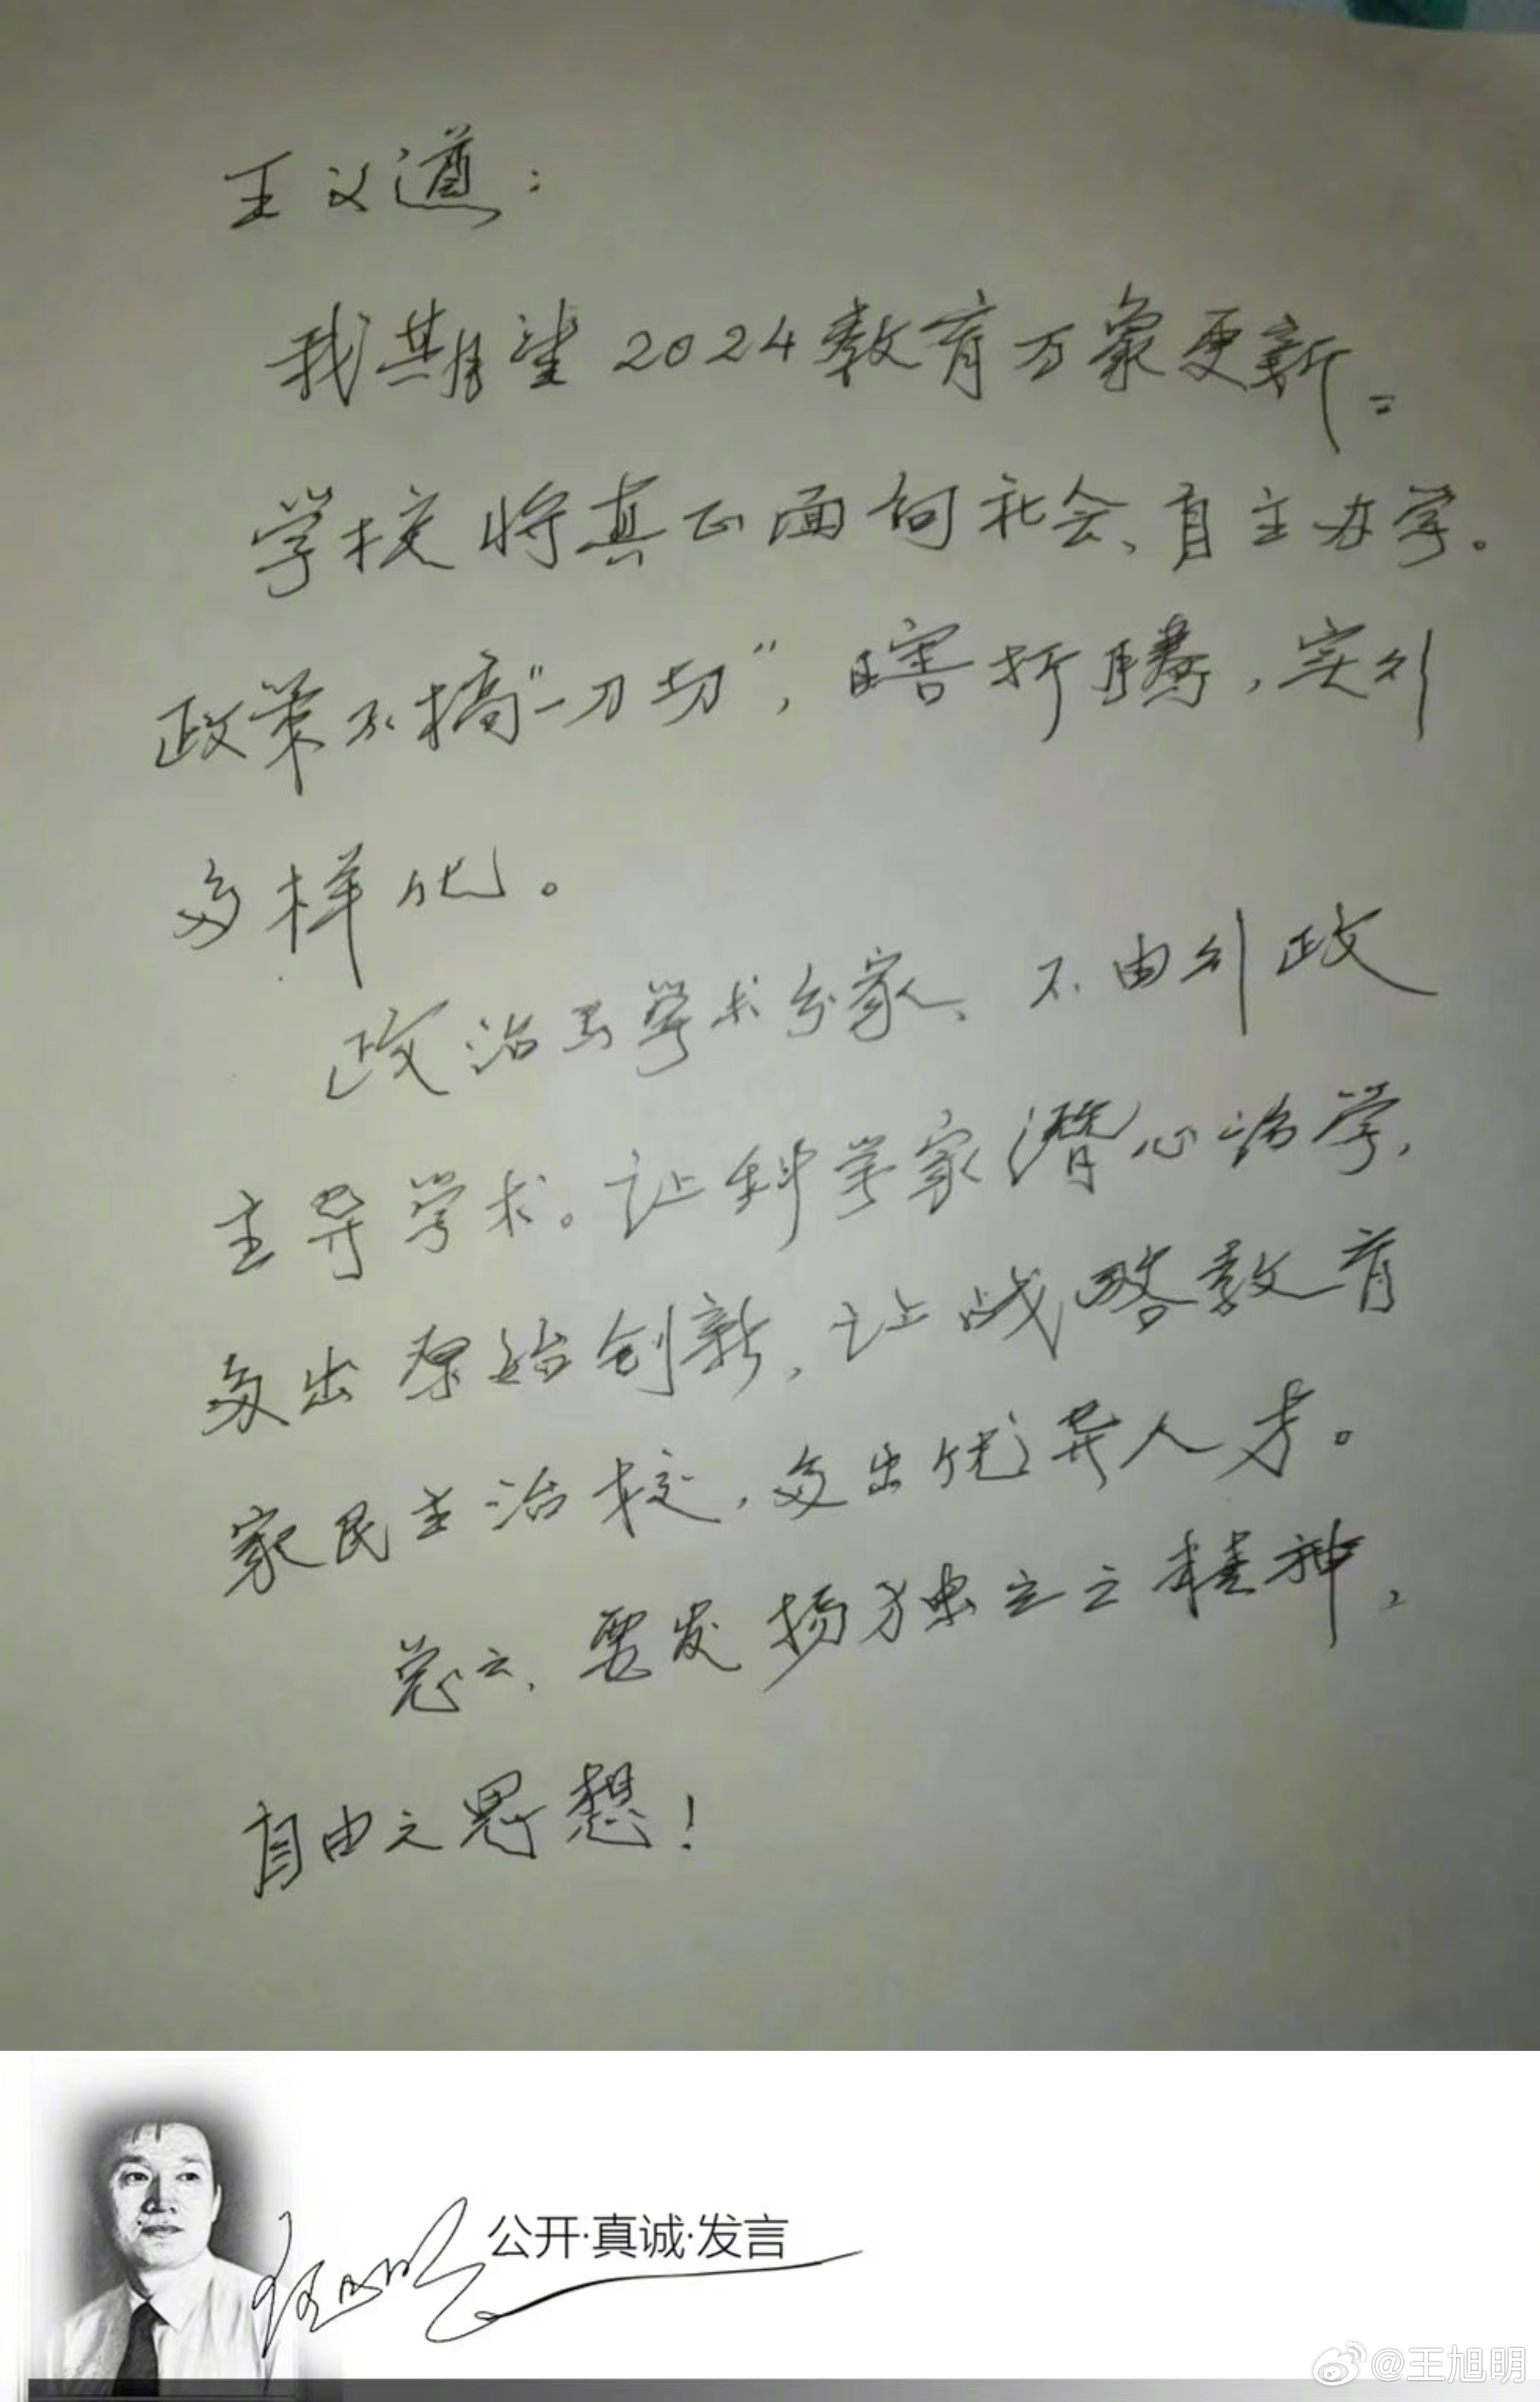 王义遒：
我期望2024教育万象更新：
学校将真正面向社会、自主办学。
政策不搞“一刀切”，瞎折腾，实行
多样化。
政治与学术分家、不由行政
主导学术。让科学家潜心治学，
多出原始创新，让战略教育
家民主治校，多出优异人才。
总之，要发扬独立之精神，
自由之思想！
公开·真诚·发言
@王旭明